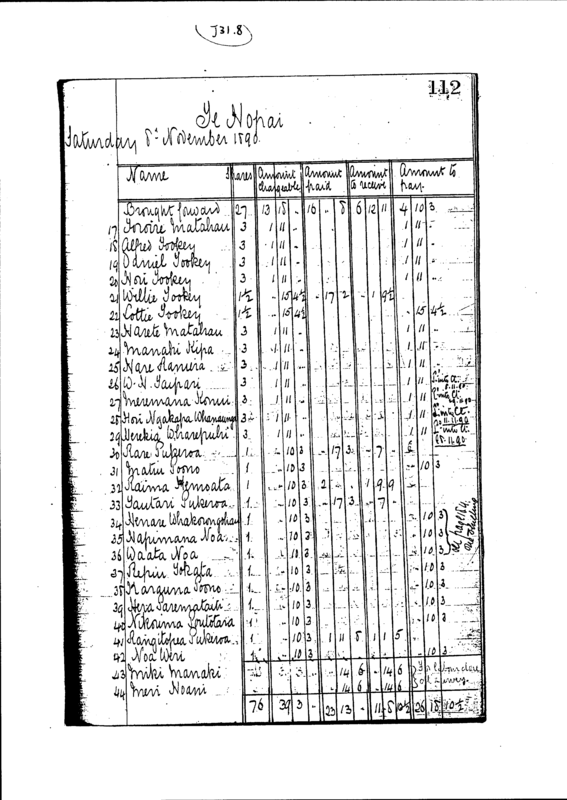 J31.8
112
Te Nopai
Saturday 8th November 1890
Name Shares Amount chargeable Amount paid Amount to receive Amount to pay.
Brought forward 27 13 18 - 16 - 8 6 12 11 4 10 3
17 Matahau 3 1 11 - 1 11 -
18 Alfred Tookey 3 1 11 - 1 11 -
19 Daniel Tookey 3 1 11 - 1 11 -
20 Hori Tookey 3 1 11 - 1 11 -
21 Willie Tookey 1½ - 15 4½ - 17 2 - 1 9½
22 Lottie Tookey 1½ - 15 4½ - 15 4½
23 Harete Matahau 3 1 11 - 1 11 -
24 Manaki Kipa 3 1 11 - 1 11 -
25 Hare Raniera 3 1 11 - 1 11 -
26 W. H. Taipari 3 1 11 - 1 11 -
27 Meremana Konui 3 1 11 - 1 11 -
28 Hori Ngakapa Whanaunga 3 1 11 - 1 11 -
29 Herekia Wharepuhi 3 1 11 - 1 11
30 Rare Pukeroa 1 - 10 3 - 17 3 - 7 -
31 Matiu Poono 1 - 10 3 - 10 3
32 Raima 1 - 10 3 2 1 9 9
33 Tautari Pukeroa 1 - 10 3 - 17 3 - 7 -
34 Henare 1 - 10 3 - 10 3
35 Hapimana Noa 1 - 10 3 - 10 3
36 Waata Noa 1 - 10 3 - 10 3
37 1 - 10 3 - 10 3
38 Poono 1 - 10 3 - 10 3
39 Hera 1 - 10 3 - 10 3
40 1 - 10 3 - 10 3
41 Rangitopea Pukeroa 1 - 10 3 1 11 8 1 1 5
42 Noa Weri 1 - 10 3 - 10 3
43 Miki Manaki 14 6 - 14 6 For labour
44 Meri Noani 14 6 - 14 6
76 39 3 - 23 13 - 11 8 10½ 26 18 10½